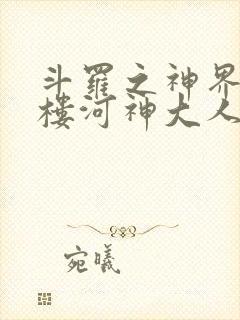 斗羅之神界
樓河神大人
宛曦